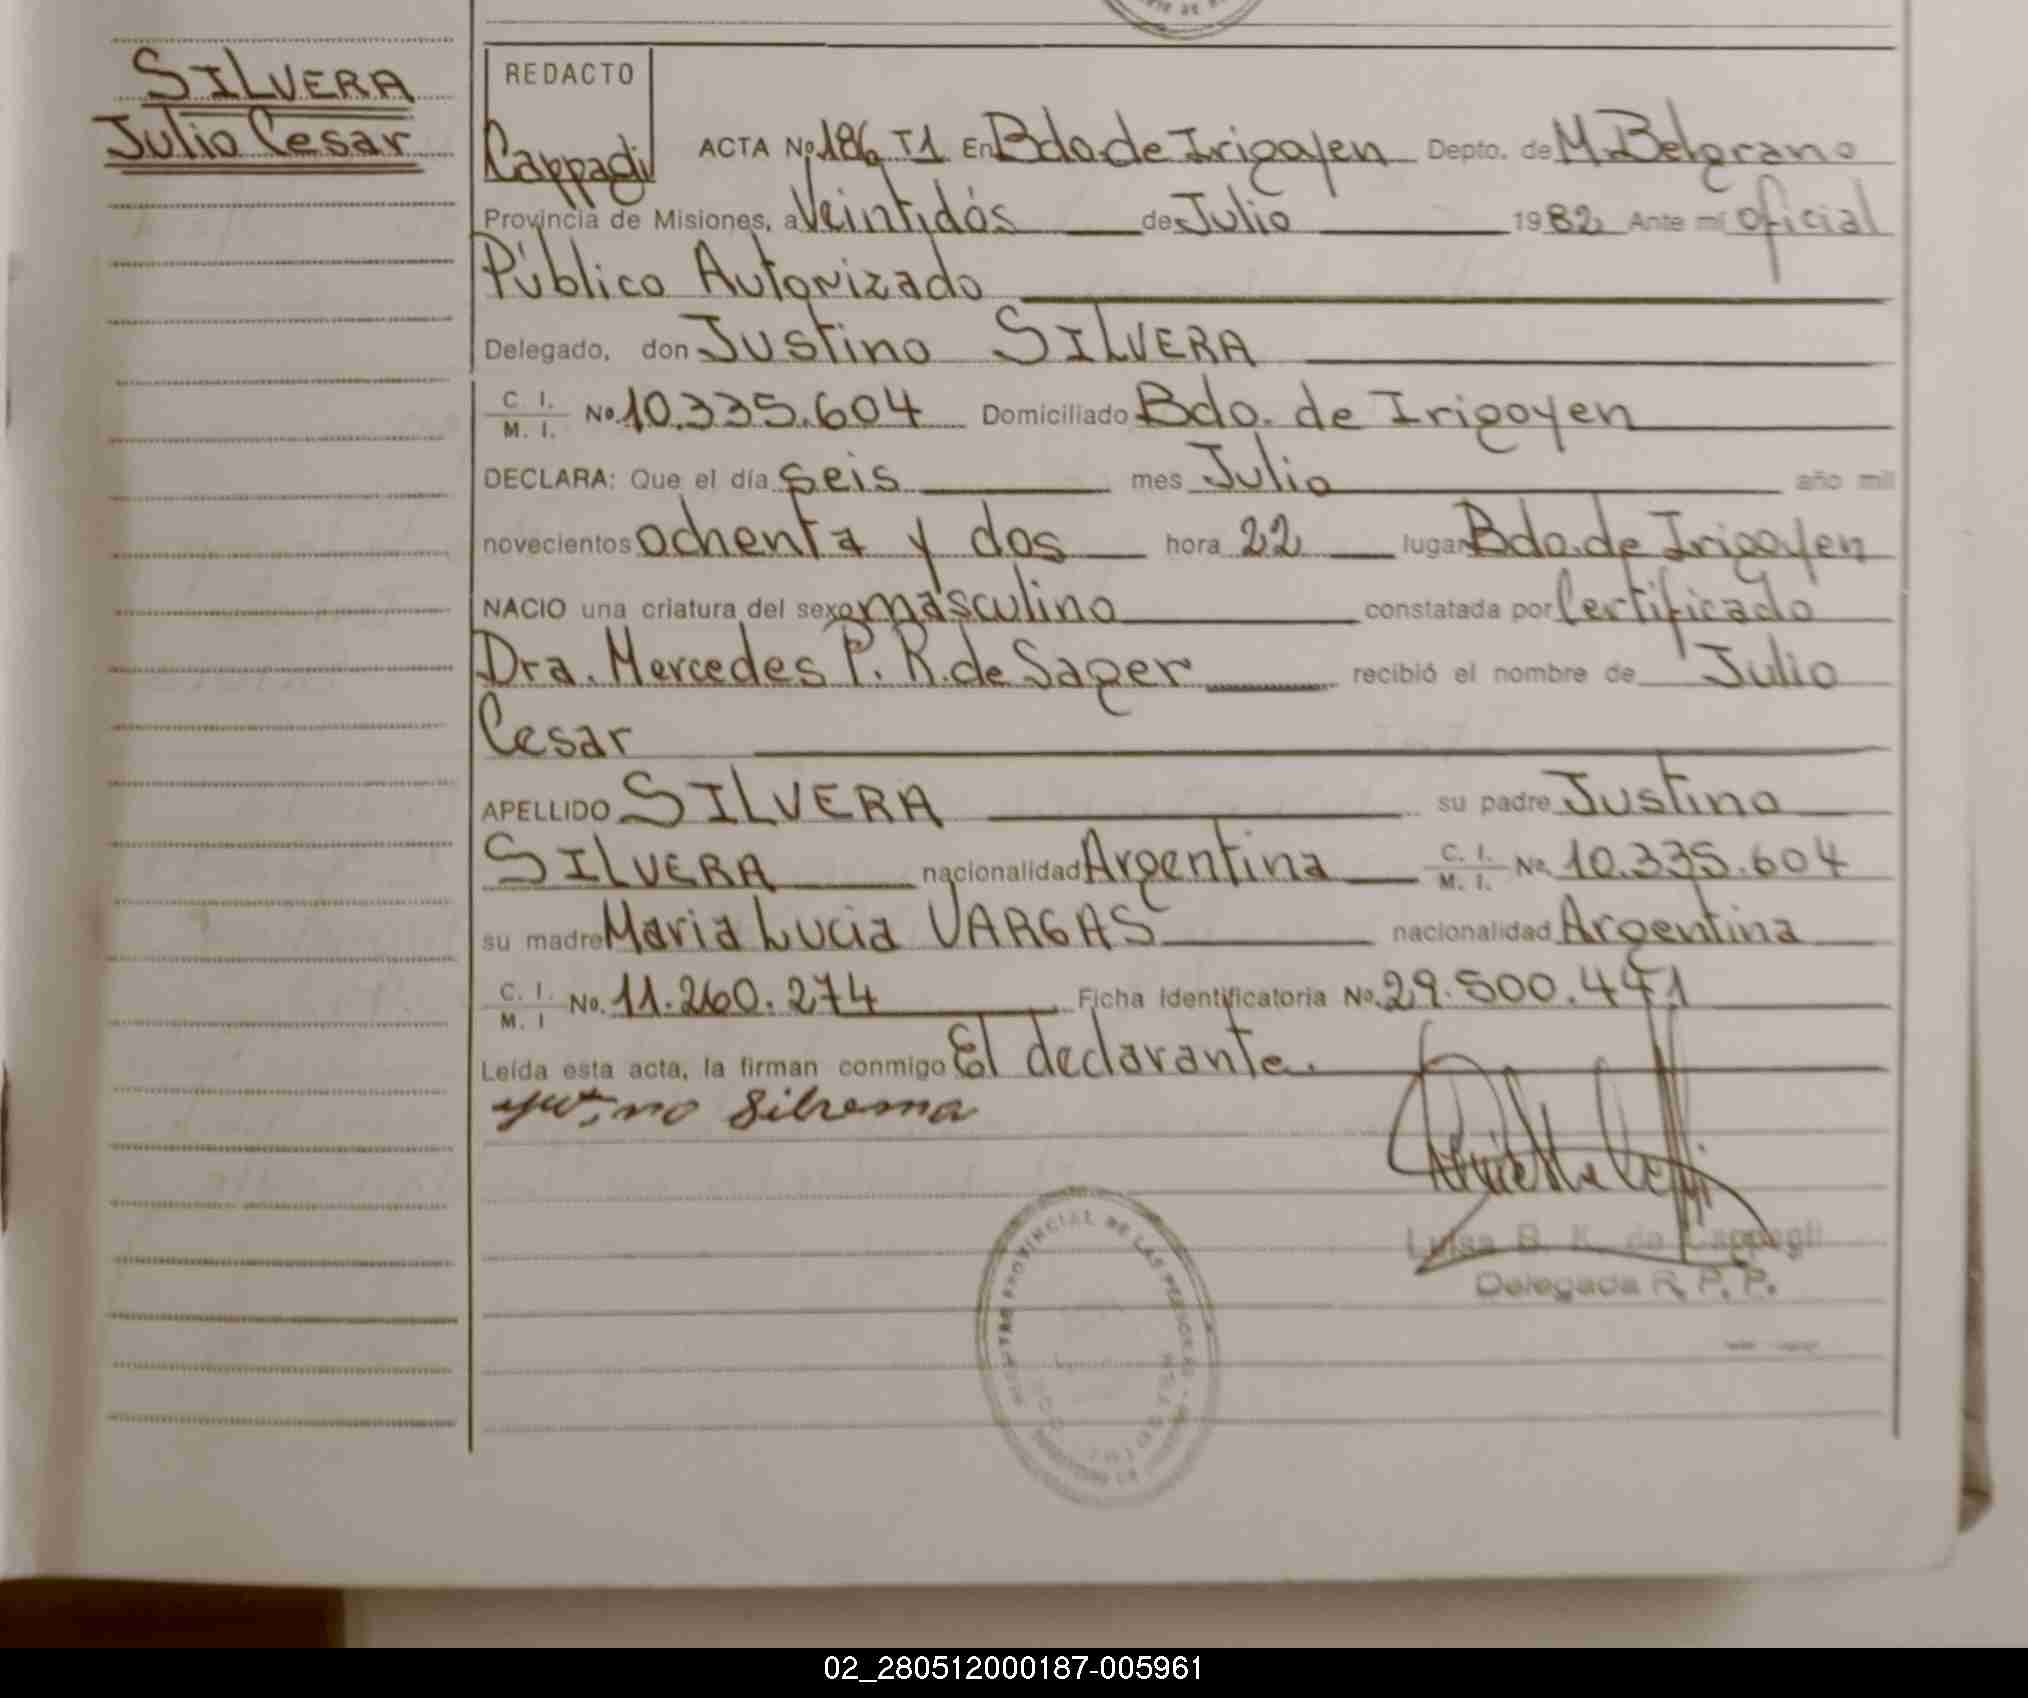 SILVERA
Julio Cesar
REDACTO
Cappagli
ACTA No. 186 T1 En Bdo. de Irigoyen Depto. de M. Belgrano
Provincia de Misiones, a Veintidós de Julio 1982 Ante mí oficial
Público Autorizado
Delegado, don Justino SILVERA
C. I. / M. I. No. 10.335.604 Domiciliado Bdo. de Irigoyen
DECLARA: Que el día seis mes Julio año mil
novecientos ochenta y dos hora 22 lugar Bdo. de Irigoyen
NACIO una criatura del sexo masculino constatada por Certificado
Dra. Mercedes P. R. de Sager recibió el nombre de Julio
Cesar
APELLIDO SILVERA su padre Justino
SILVERA nacionalidad Argentina C. I. / M. I. No. 10.335.604
su madre Maria Lucia VARGAS nacionalidad Argentina
C. I. / M. I No. 11.260.274 Ficha Identificatoria No. 29.500.441
Leída esta acta, la firman conmigo El declarante.
Luisa B. K. de Cappagli
Delegada R. P. P.
PROVINCIAL DE LAS PERSONAS
02_280512000187-005961